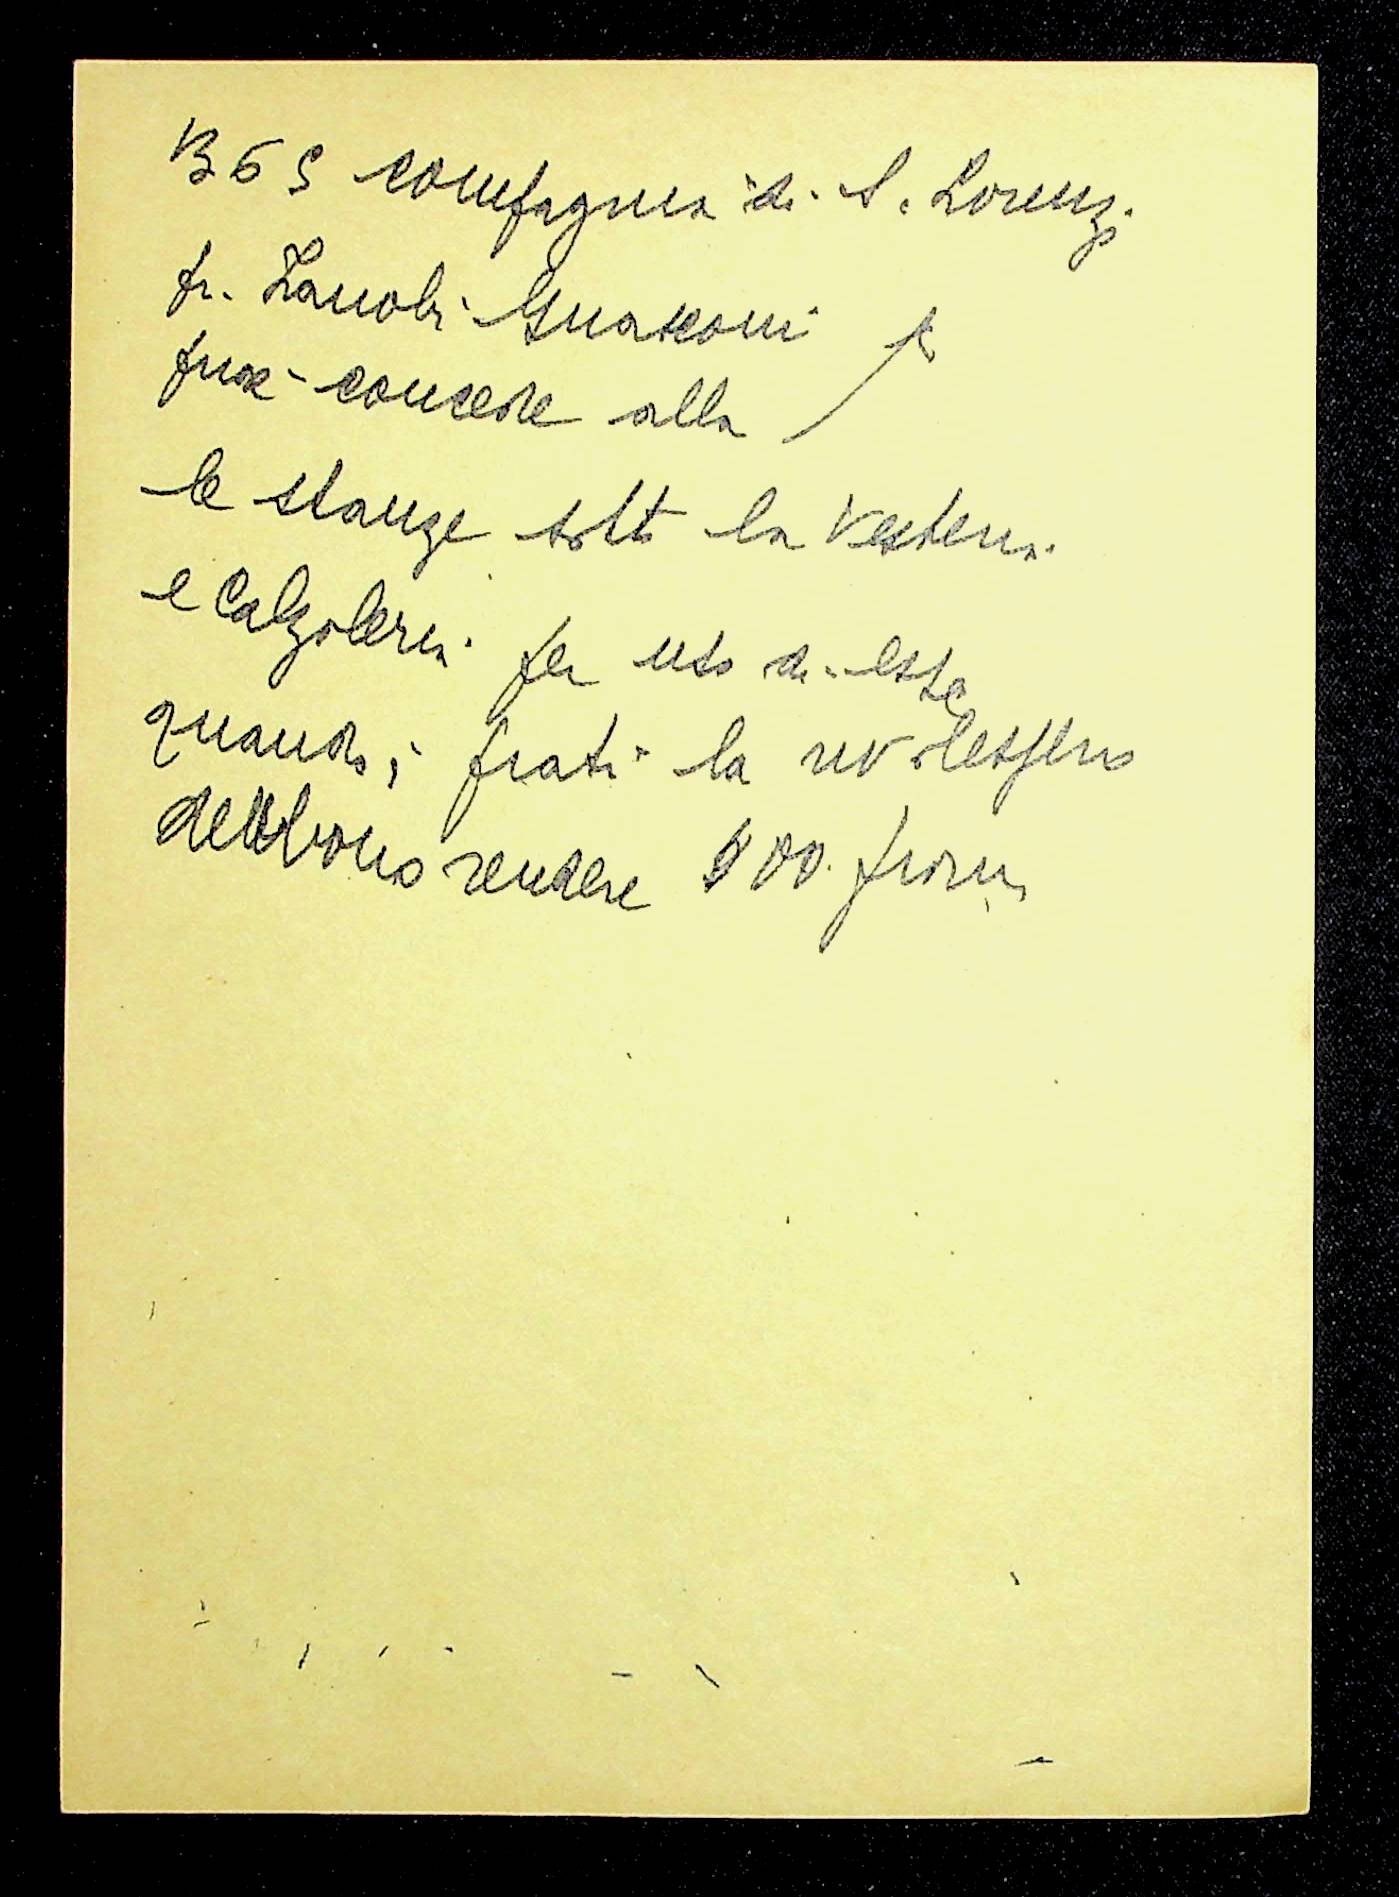 1365 compagnia di S. Lorenzo
fr. Zanobi Guasconi
prior concede alla
le stanze sotto la Vesteria
e Calzoleria per uso di essa
quando i frati la rivolessero
debbono rendere 100 fiorini